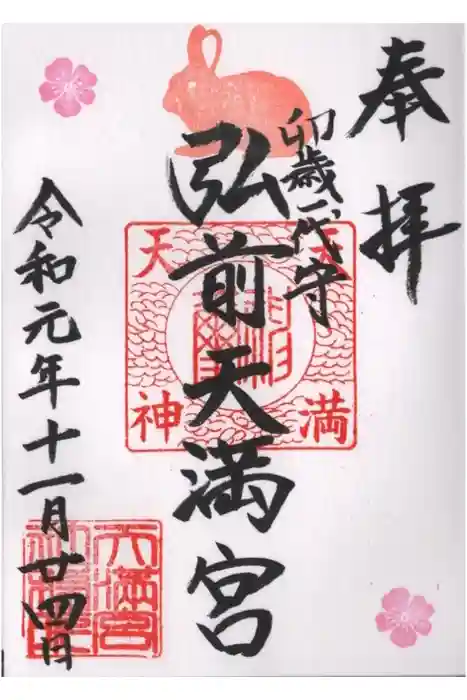 奉拝
卯歳一代守
弘前天満宮
天満
天神
令和元年十一月廿四日